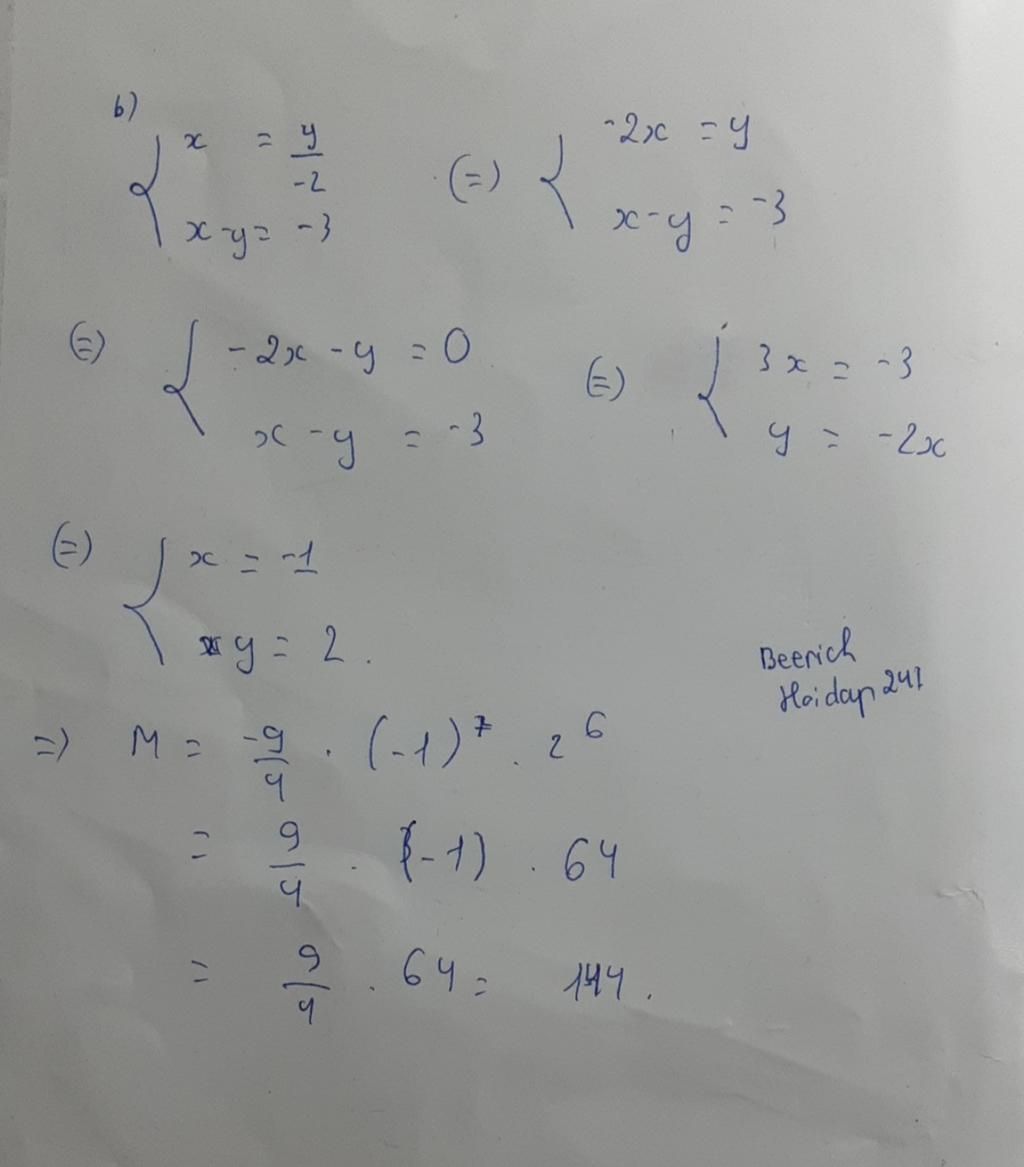 b)
{ x = y/-2 (=) { -2x = y
x-y = -3 x-y = -3
(=) { -2x - y = 0 (=) { 3x = -3
x - y = -3 y = -2x
(=) { x = -1
y = 2.
Beerich
Hoidap247
=) M = -9/4 . (-1)^7 . 2^6
= 9/4 . (-1) . 64
= 9/4 . 64 = 144.